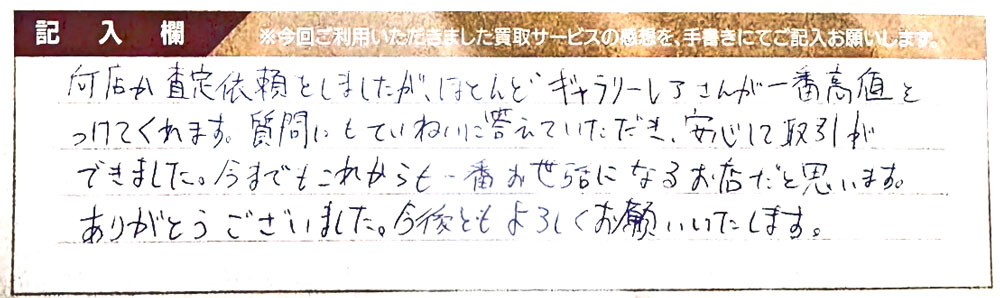 記入欄
※今回ご利用いただきました買取サービスの感想を、手書きにてご記入お願いします。
何店か査定依頼をしましたが、ほとんどギャラリーレアさんが一番高値を
つけてくれます。質問にもていねいに答えていただき、安心して取引が
できました。今までもこれからも一番お世話になるお店だと思います。
ありがとうございました。今後ともよろしくお願いいたします。